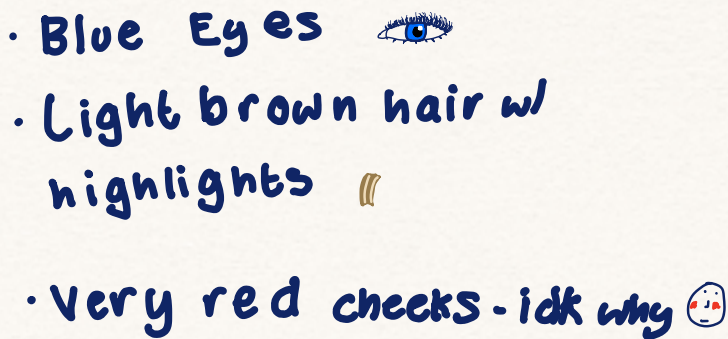 · Blue Eyes
· Light brown hair w/
highlights
· Very red cheeks - idk why